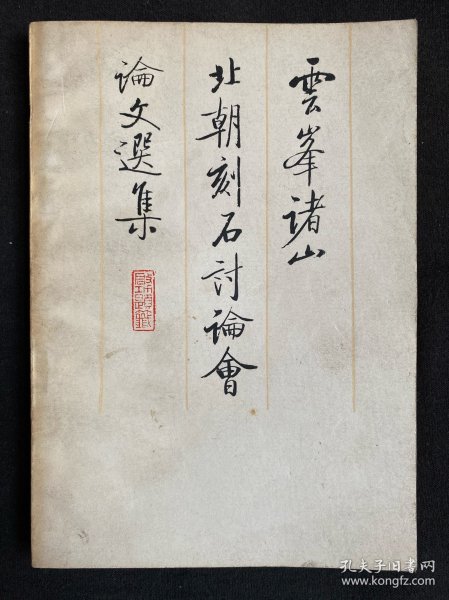 雲峯诸山
北朝刻石討論會
論文選集
孔夫子旧书网
www.kongfz.com